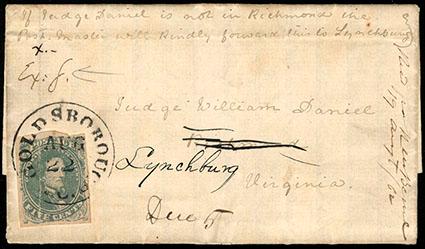 If Judge Daniel is not in Richmond the
Post Master will kindly forward this to Lynchburg
x.-
Ex: J.
Judge William Daniel
Lynchburg
Virginia.
Due 5
GOLDSBOROUG
AUG
22
N.C.
FIVE CENTS